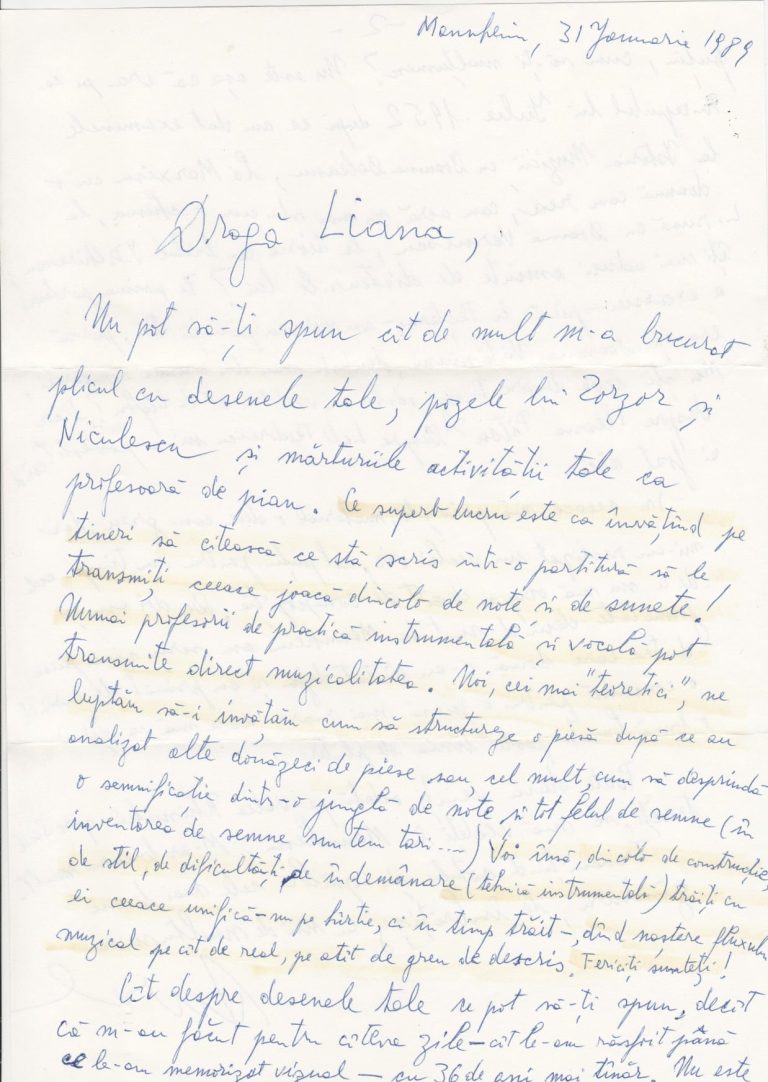 Mannheim, 31 Januarie 1989
Dragă Liana,
Nu pot să-ți spun cât de mult m-a bucurat
plicul cu desenele tale, pozele lui Zorzor și
Niculescu și mărturiile activității tale ca
profesoară de pian. Ce superb lucru este ca învățînd pe
tineri să citească ce stă scris într-o partitură să le
transmiți ceeace joacă dincolo de note și de sunete!
Numai profesorii de practică instrumentală și vocală pot
transmite direct muzicalitatea. Noi, cei mai "teoretici", ne
luptăm să-i învățăm cum să structureze o piesă după ce au
analizat alte douăzeci de piese sau, cel mult, cum să desprindă
o semnificație dintr-o junglă de note și tot felul de semne (în
inventarea de semne suntem tari....) Voi însă, dincolo de construcție,
de stil, de dificultăți de îndemânare (tehnică instrumentală) trăiți cu
ei ceeace unifică – nu pe hîrtie, ci în timp trăit –, dînd naștere fluxului
muzical pe cît de real, pe atît de greu de descris. Fericiți sunteți!
Cît despre desenele tale ce pot să-ți spun, decît
că m-au făcut pentru cîteva zile – cît le-am răsfoit pînă
ce le-am memorizat vizual – cu 36 de ani mai tînăr. Nu este